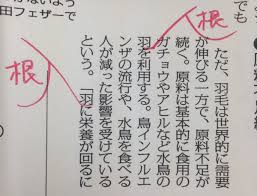 でも
がないよう
田フェザーで
根
ただ、羽毛は世界的に需要
が伸びる一方で、原料不足が
続く。原料は基本的に食用の
ガチョウやアヒルなど水鳥の
羽を利用する。鳥インフルエ
ンザの流行や、水鳥を食べる
人が減った影響を受けている
という。「羽に栄養が回るに
根